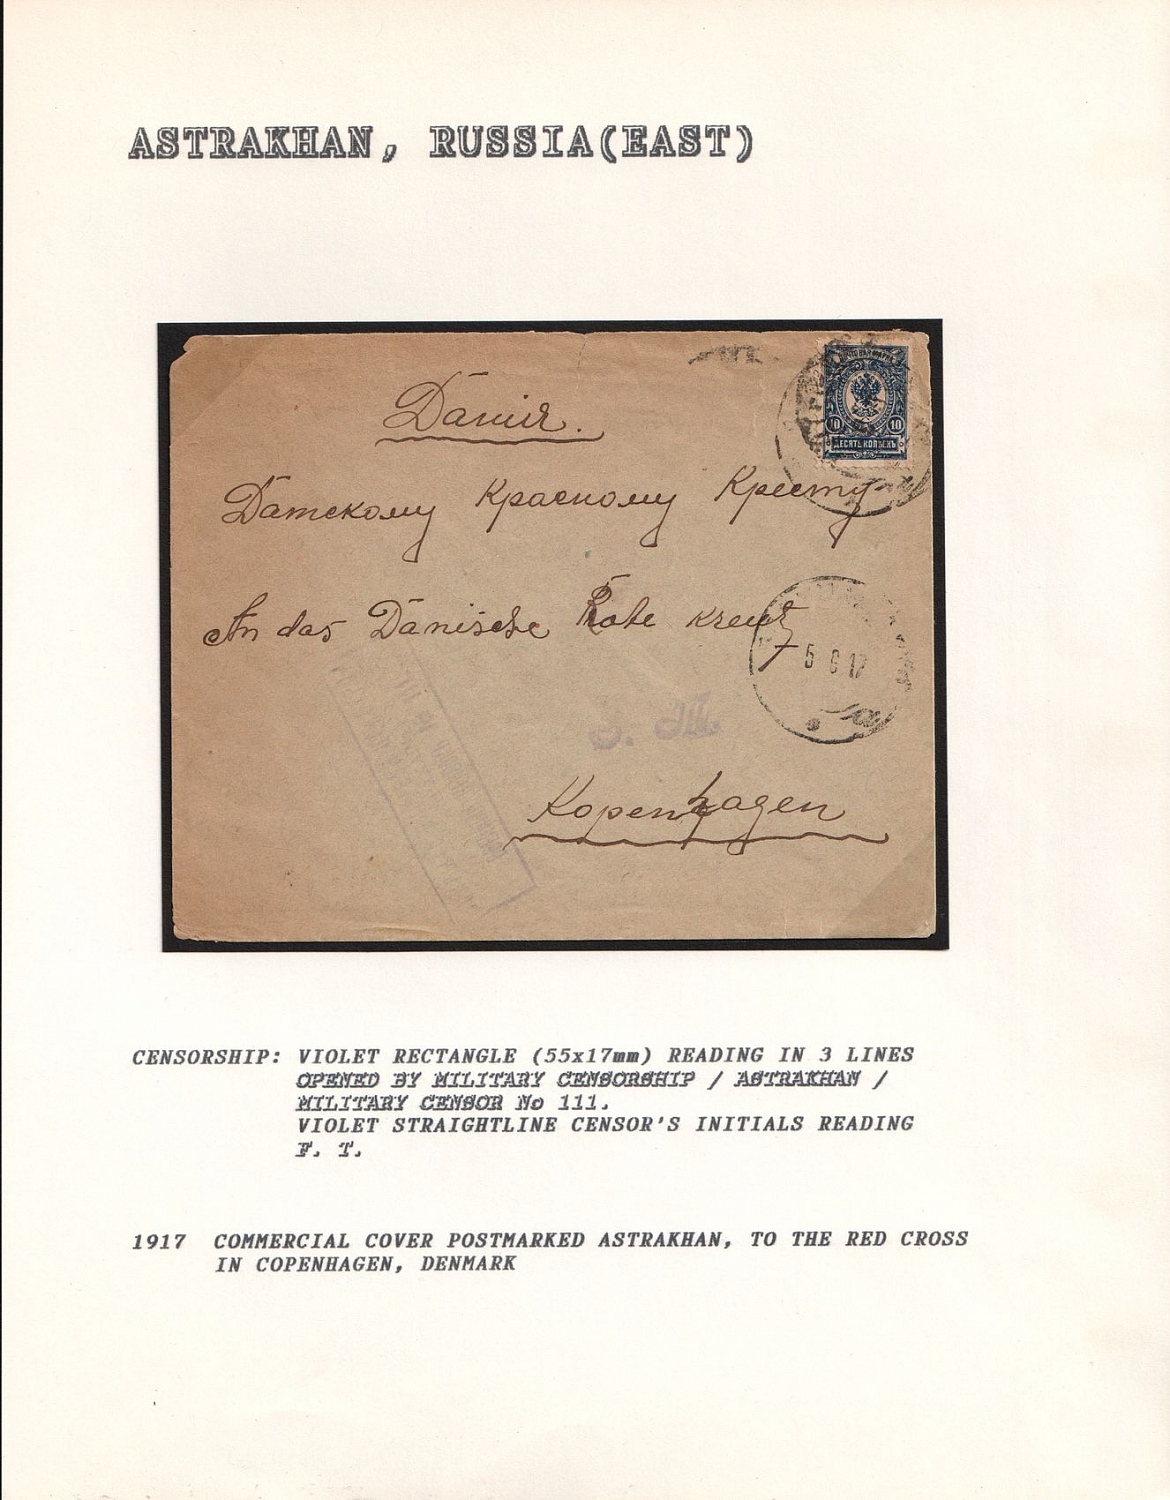 ASTRAKHAN, RUSSIA(EAST)
Данiя.
10 10
ДЕСЯТЬ КОПѢЕКЪ
Датскому Красному Кресту
An das Dänische Rote kreuz
5 6 17
Kopenhagen
CENSORSHIP: VIOLET RECTANGLE (55x17mm) READING IN 3 LINES
OPENED BY MILITARY CENSORSHIP / ASTRAKHAN /
MILITARY CENSOR No 111.
VIOLET STRAIGHTLINE CENSOR'S INITIALS READING
F. T.
1917 COMMERCIAL COVER POSTMARKED ASTRAKHAN, TO THE RED CROSS
IN COPENHAGEN, DENMARK